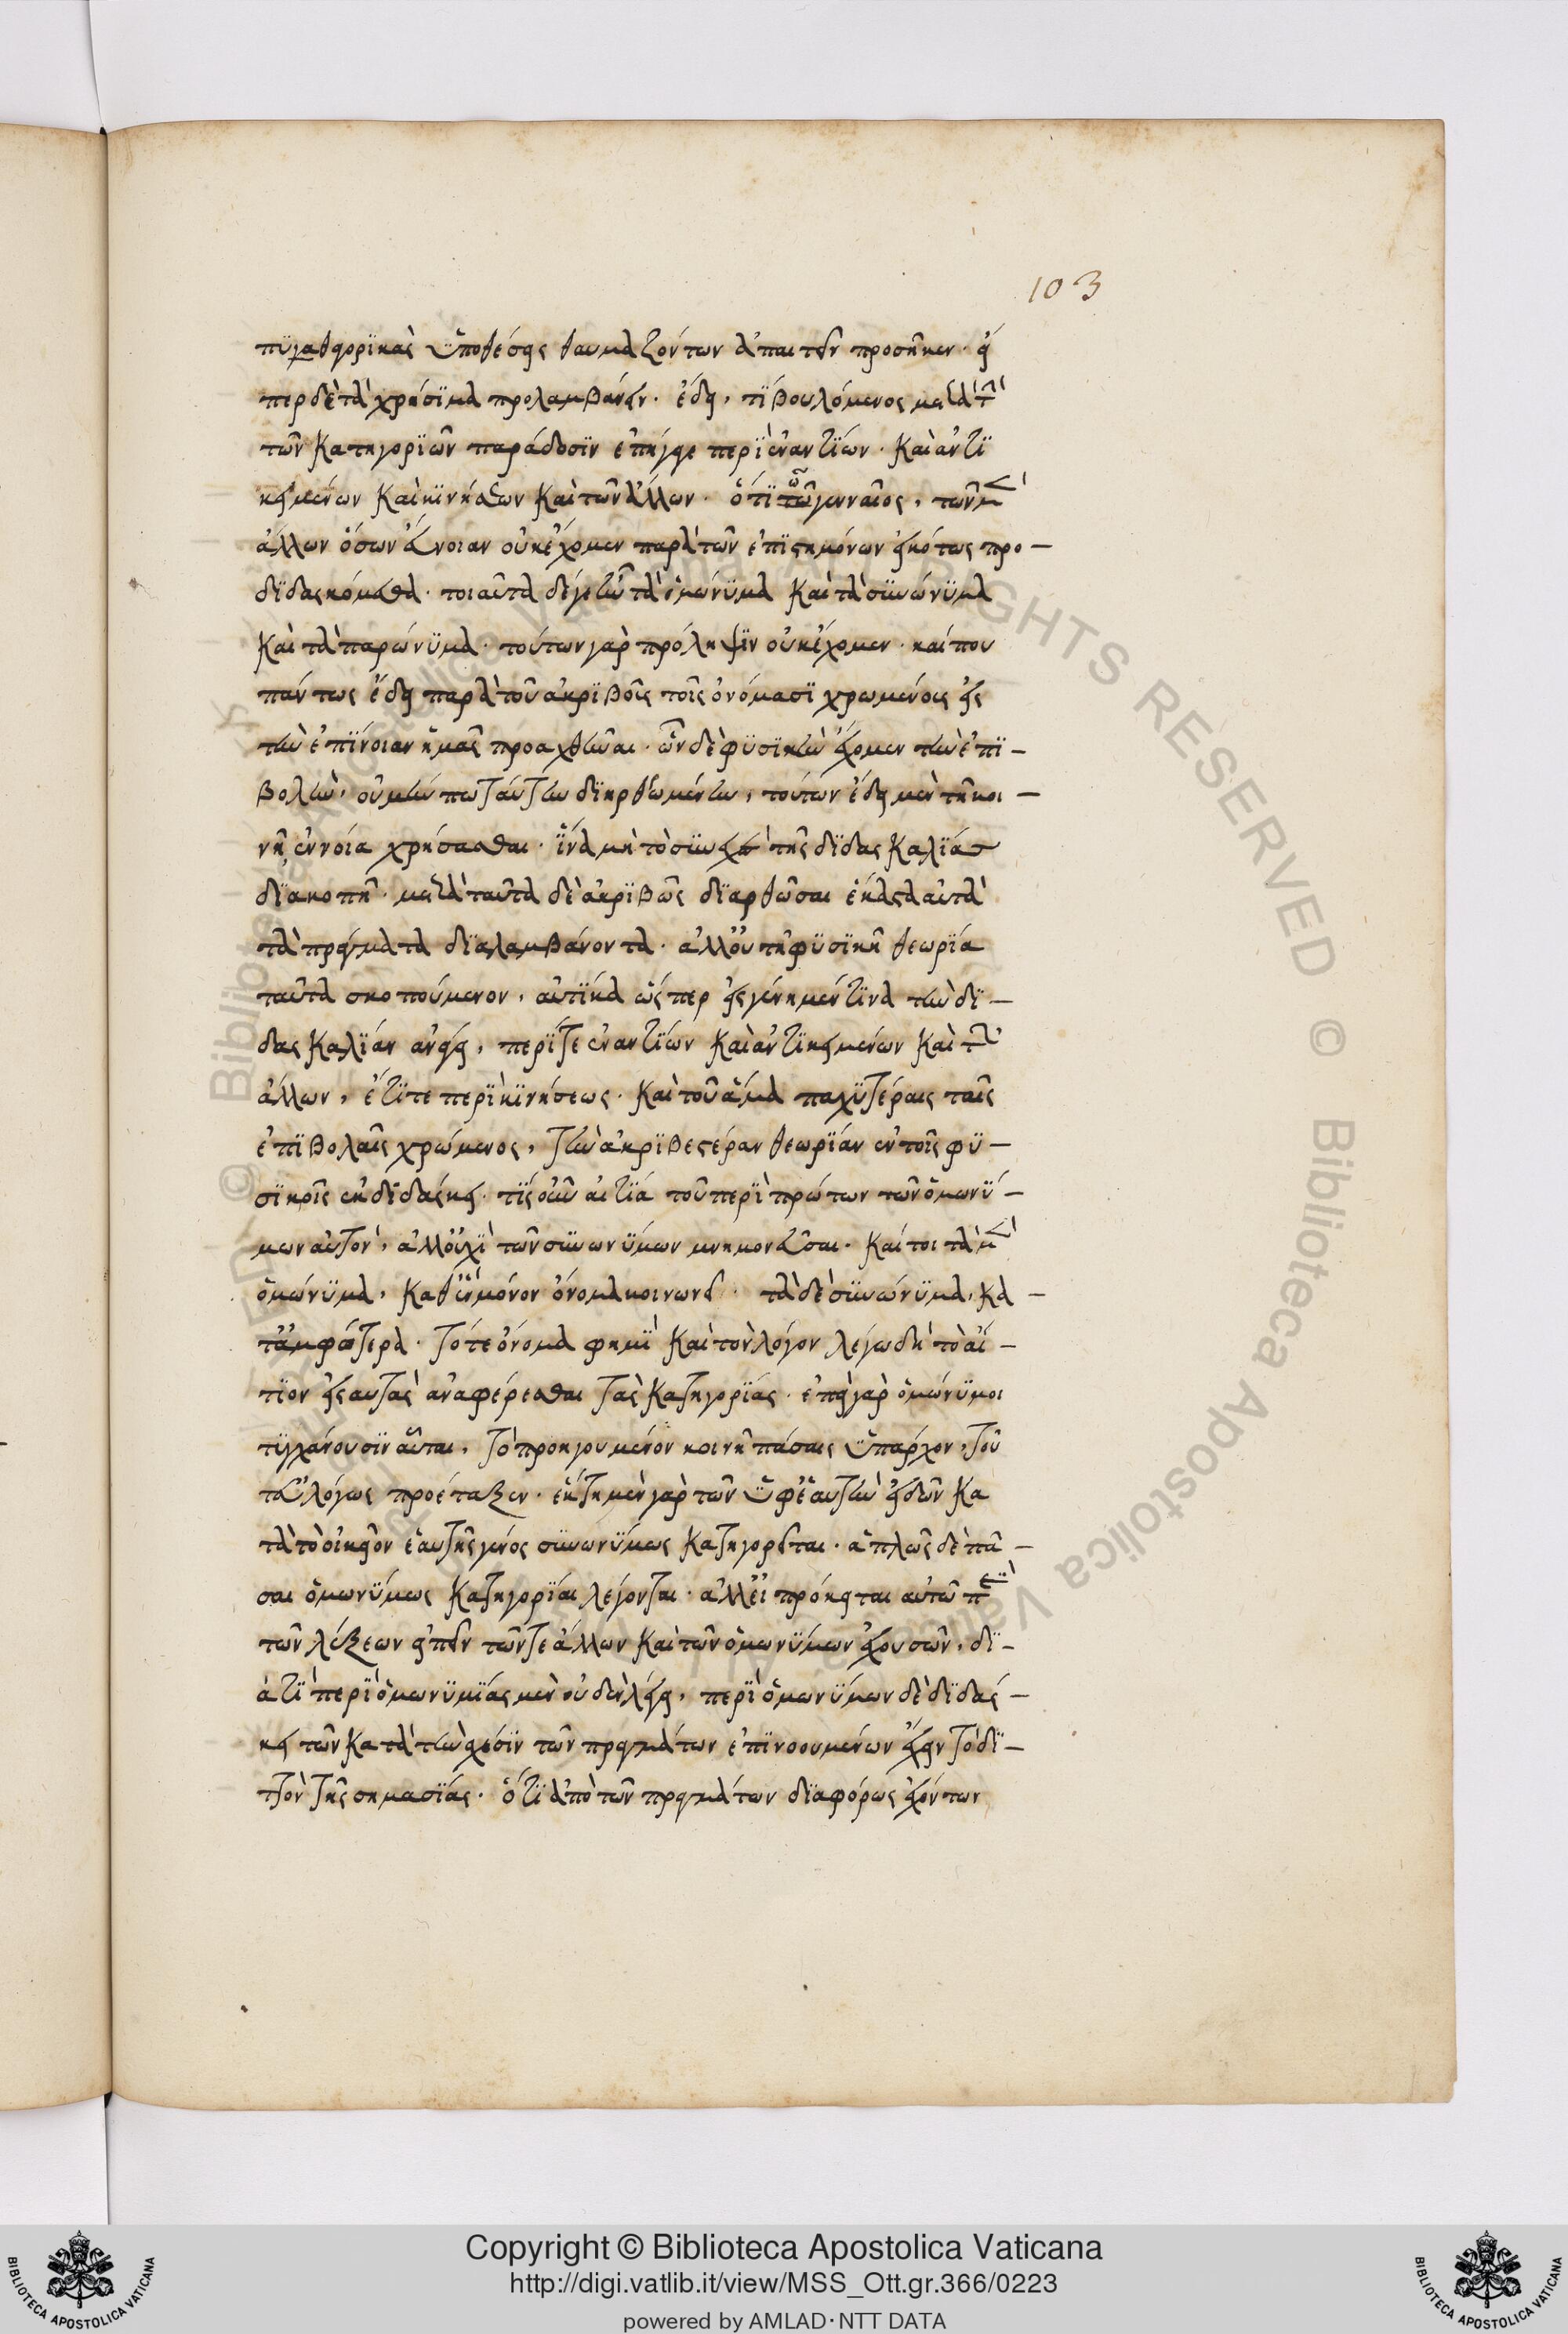 103
πϋγαθφορϊκὰς ὑποθέσεις θαυμαζόντων ἀπαιτεῖν προσῆκεν· εἴ
περ δὲ τὰ χρήσϊμα προλαμβάνειν. ἔδει, τϊ βουλόμενος μετὰ τὴν
τῶν κατηγορϊῶν παράδοσϊν ἐπήγαγε περὶ ἐναντϊων· καὶ ἀντϊ
κειμένων καὶ κϊνήσεων καὶ τῶν ἄλλων. ὅτϊ ὦ γενναῖος, τῶν μὲν
ἄλλων ὅσων ἔννοιαν οὐκ ἔχομεν παρὰ τῶν ἐπϊστημόνων εἰκότως προ–
δϊδασκόμεθα. τοιαῦτα δέ γε ἦν τὰ ὁμώνϋμα καὶ τὰ σϋνώνϋμα
καὶ τὰ παρώνϋμα· τούτων γὰρ πρόληψϊν οὐκ ἔχομεν. καίπου
πάντως ἔδει παρὰ τοῦ ἀκρϊβοῖς τοῖς ὀνόμασϊ χρωμένοις εἰς
τὴν ἐπϊνοιαν ἡμᾶς προαχθῆναι. ὧν δὲ φϋσϊκὴν ἔχομεν τὴν ἐπϊ–
βολὴν, οὐ μήν πω ταύτην δϊηρθωμένην, τούτων ἔδει μὲν τῇ κοι–
νῇ ἐννοία χρήσασθαι. ἵνα μὴ τὸ σϋνεχὲς τῆς δϊδασκαλϊας
δϊακοπῆ. μετὰ ταῦτα δὲ ἀκρϊβῶς δϊαρθῶσαι ἕκαστα αὐτὰ
τὰ πράγματα δϊαλαμβάνοντα. ἀλλ' οὐ τῆ φϋσϊκῆ θεωρϊα
ταῦτα σκοπούμενον, αὐτϊκα ὥσπερ εἰς γένη μέν τϊνα τὴν δϊ–
δασκαλϊαν ἀνάγει, περϊ τε ἐναντϊων καὶ ἀντϊκειμένων καὶ τῶν
ἄλλων, ἔτϊ τε περὶ κϊνήσεως. καὶ τοῦ ἅμα παχϋτέραις ταῖς
ἐπϊβολαῖς χρώμενος, τὴν ἀκρϊβεστέραν θεωρϊαν ἐν τοῖς φϋ–
σϊκοῖς ἐκδϊδάσκει. τϊς οὖν αἰτϊα τοῦ περὶ πρώτων τῶν ὁμωνϋ–
μων αὐτὸν, ἀλλ' οὐχὶ τῶν σϋνωνϋμων μνημονεῦσαι. καίτοι τὰ μὲν
ὁμώνϋμα, καθ' ἓν μόνον ὄνομα κοινωνεῖ. τὰ δὲ σϋνώνϋμα, κα–
τ' ἀμφότερα. τό τε ὄνομα φημὶ καὶ τὸν λόγον λέγω δὴ τὸ αἴ–
τϊον εἰς αὐτὰς ἀναφέρεσθαι τὰς κατηγορϊας. ἐπεὶ γὰρ ὁμώνϋμοι
τϋγχάνουσϊν αὗται, τὸ προηγουμένον κοινῆ πάσαις ὑπάρχον, τοῦ
τ' εὐλόγως προέταξεν. ἑκάστη μὲν γὰρ τῶν ὑφ' ἑαυτὴν εἰδῶν κα
τὰ τὸ οἰκεῖον ἑαυτῆς γένος σϋνωνϋμως κατηγορεῖται. ἁπλῶς δὲ πᾶ–
σαι ὁμωνϋμως κατηγορϊαι λέγονται. ἀλλ' εἰ πρόκειται αὐτῶ περὶ
τῶν λέξεων εἰπεῖν τῶν τε ἄλλων καὶ τῶν ὁμωνϋμων ἐχουσῶν, δϊ–
ατϊ περὶ ὁμωνϋμϊας μὲν οὐδὲν λέγει, περὶ ὁμωνϋμων δὲ δϊδάσ–
κει τῶν κατὰ τὴν σχέσϊν τῶν πραγμάτων ἐπϊνοουμένων ἔχειν τὸ δϊ–
ττὸν τῆς σημασϊας. ὅτϊ ἀπὸ τῶν πραγμάτων δϊαφόρως ἐχόντων
Copyright © Biblioteca Apostolica Vaticana
http://digi.vatlib.it/view/MSS_Ott.gr.366/0223
powered by AMLAD·NTT DATA